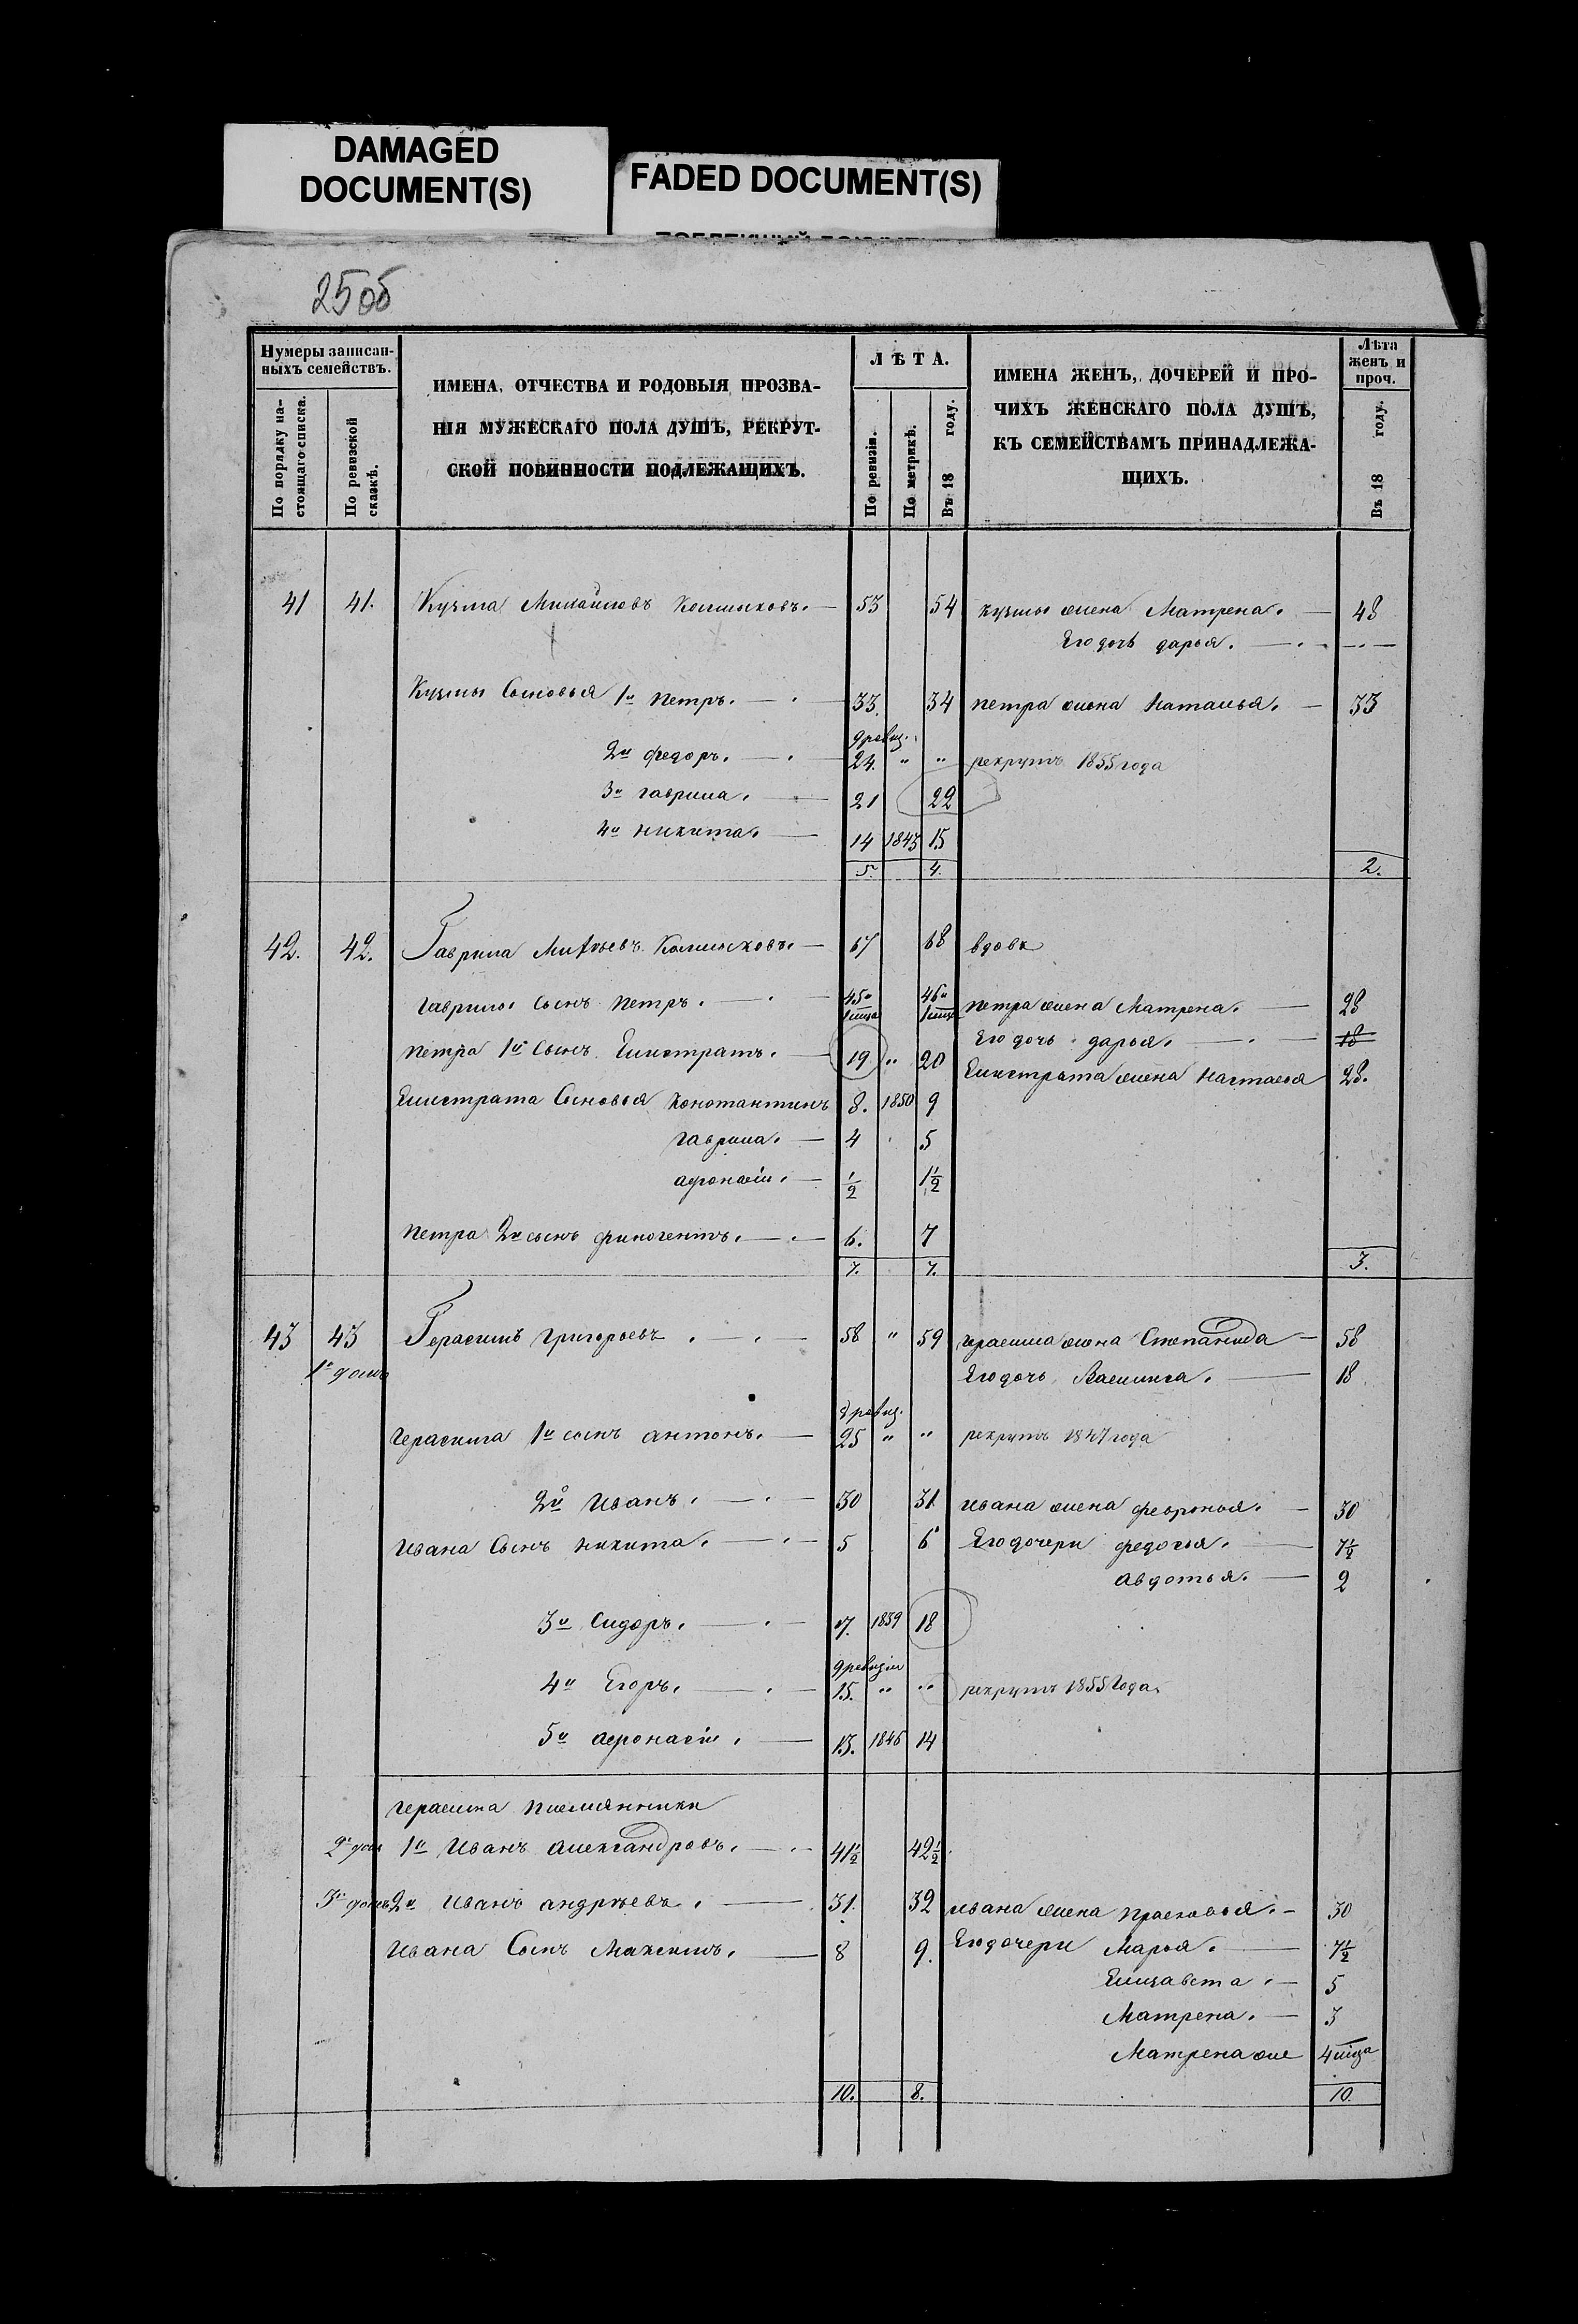 DAMAGED
DOCUMENT(S)
FADED DOCUMENT(S)
25 об
Нумеры записан-
ныхъ семействъ.
По порядку на-
стоящаго списка.
По ревизской
сказкѣ.
ИМЕНА, ОТЧЕСТВА И РОДОВЫЯ ПРОЗВА-
НІЯ МУЖЕСКАГО ПОЛА ДУШЪ, РЕКРУТ-
СКОЙ ПОВИННОСТИ ПОДЛЕЖАЩИХЪ.
ЛѢТА.
По ревизіи.
По метрикѣ.
Въ 18 году.
ИМЕНА ЖЕНЪ, ДОЧЕРЕЙ И ПРО-
ЧИХЪ ЖЕНСКАГО ПОЛА ДУШЪ,
КЪ СЕМЕЙСТВАМЪ ПРИНАДЛЕЖА-
ЩИХЪ.
Лѣта
женъ и
проч.
Въ 18 году.
41 41. Кузма Михайловъ 53 54 кузмы жена Матрена. 48
Его дочь дарья.
Кузмы Сыновья 1й петръ. 33. 34 петра жена Наталья. 33
9 ревиз.
2й федоръ. 24. " " рекрутъ 1855 года
3й гаврила. 21 22
4й никита. 14 1843 15
5. 4. 2.
42. 42. Гаврила 67 68 вдовъ
гаврилы сынъ петръ. 45 и 46 и петра жена Матрена. 28
1 мца 1 мца Его дочь дарья. 18
петра 1й сынъ Елистратъ. 19 " 20 Елистрата жена настасья 28.
Елистрата Сыновья константинъ 8. 1850 9
гаврила. 4 5
афонасіи. 1/2 1 1/2
петра 2й сынъ финогентъ. 6. 7
7. 7. 3.
43 43 Герасимъ григорьевъ. 58 " 59 герасима жена Степанида 58
1й домъ Его дочь Василиса. 18
9 ревиз.
герасима 1й сынъ антонъ. 25 " " рекрутъ 1847 года
2й Иванъ. 30 31. ивана жена февронья. 30
Ивана Сынъ никита. 5 6 Его дочери федосья. 7 1/2
авдотья. 2
3й Сидоръ. 17. 1839 18
9 ревизіи
4й Егоръ. 15. " " рекрутъ 1855 Года.
5й афонасіи. 13. 1845 14
герасима племянники
2й домъ 1й Иванъ александровъ. 41 1/2 42 1/2
3й домъ 2й Иванъ андреевъ. 31. 32 ивана жена прасковья. 30
Ивана Сынъ Максимъ. 8 9. Его дочери Марья. 7 1/2
Елизавета. 5
Матрена. 3
Матрена же 4 мца
10. 8. 10.